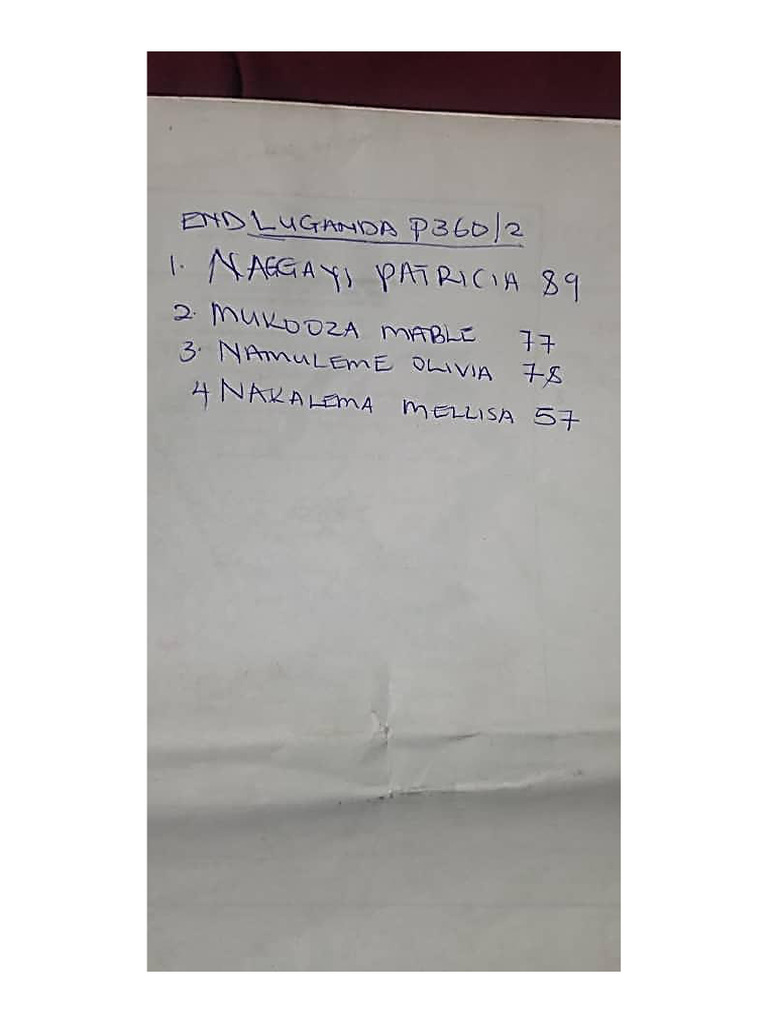 END LUGANDA P360/2
1. NAGGAYI PATRICIA 89
2. MUKOOZA MABLE 77
3. NAMULEME OLIVIA 78
4 NAKALEMA MELLISA 57